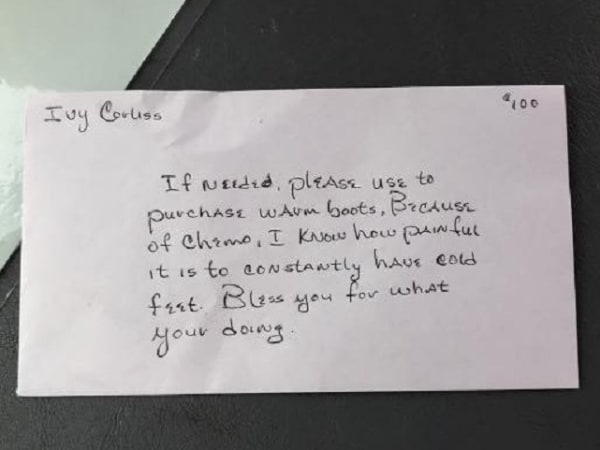 Ivy Corliss
$100
If needed, please use to
purchase warm boots, Because
of Chemo, I know how painful
it is to constantly have cold
feet. Bless you for what
your doing.